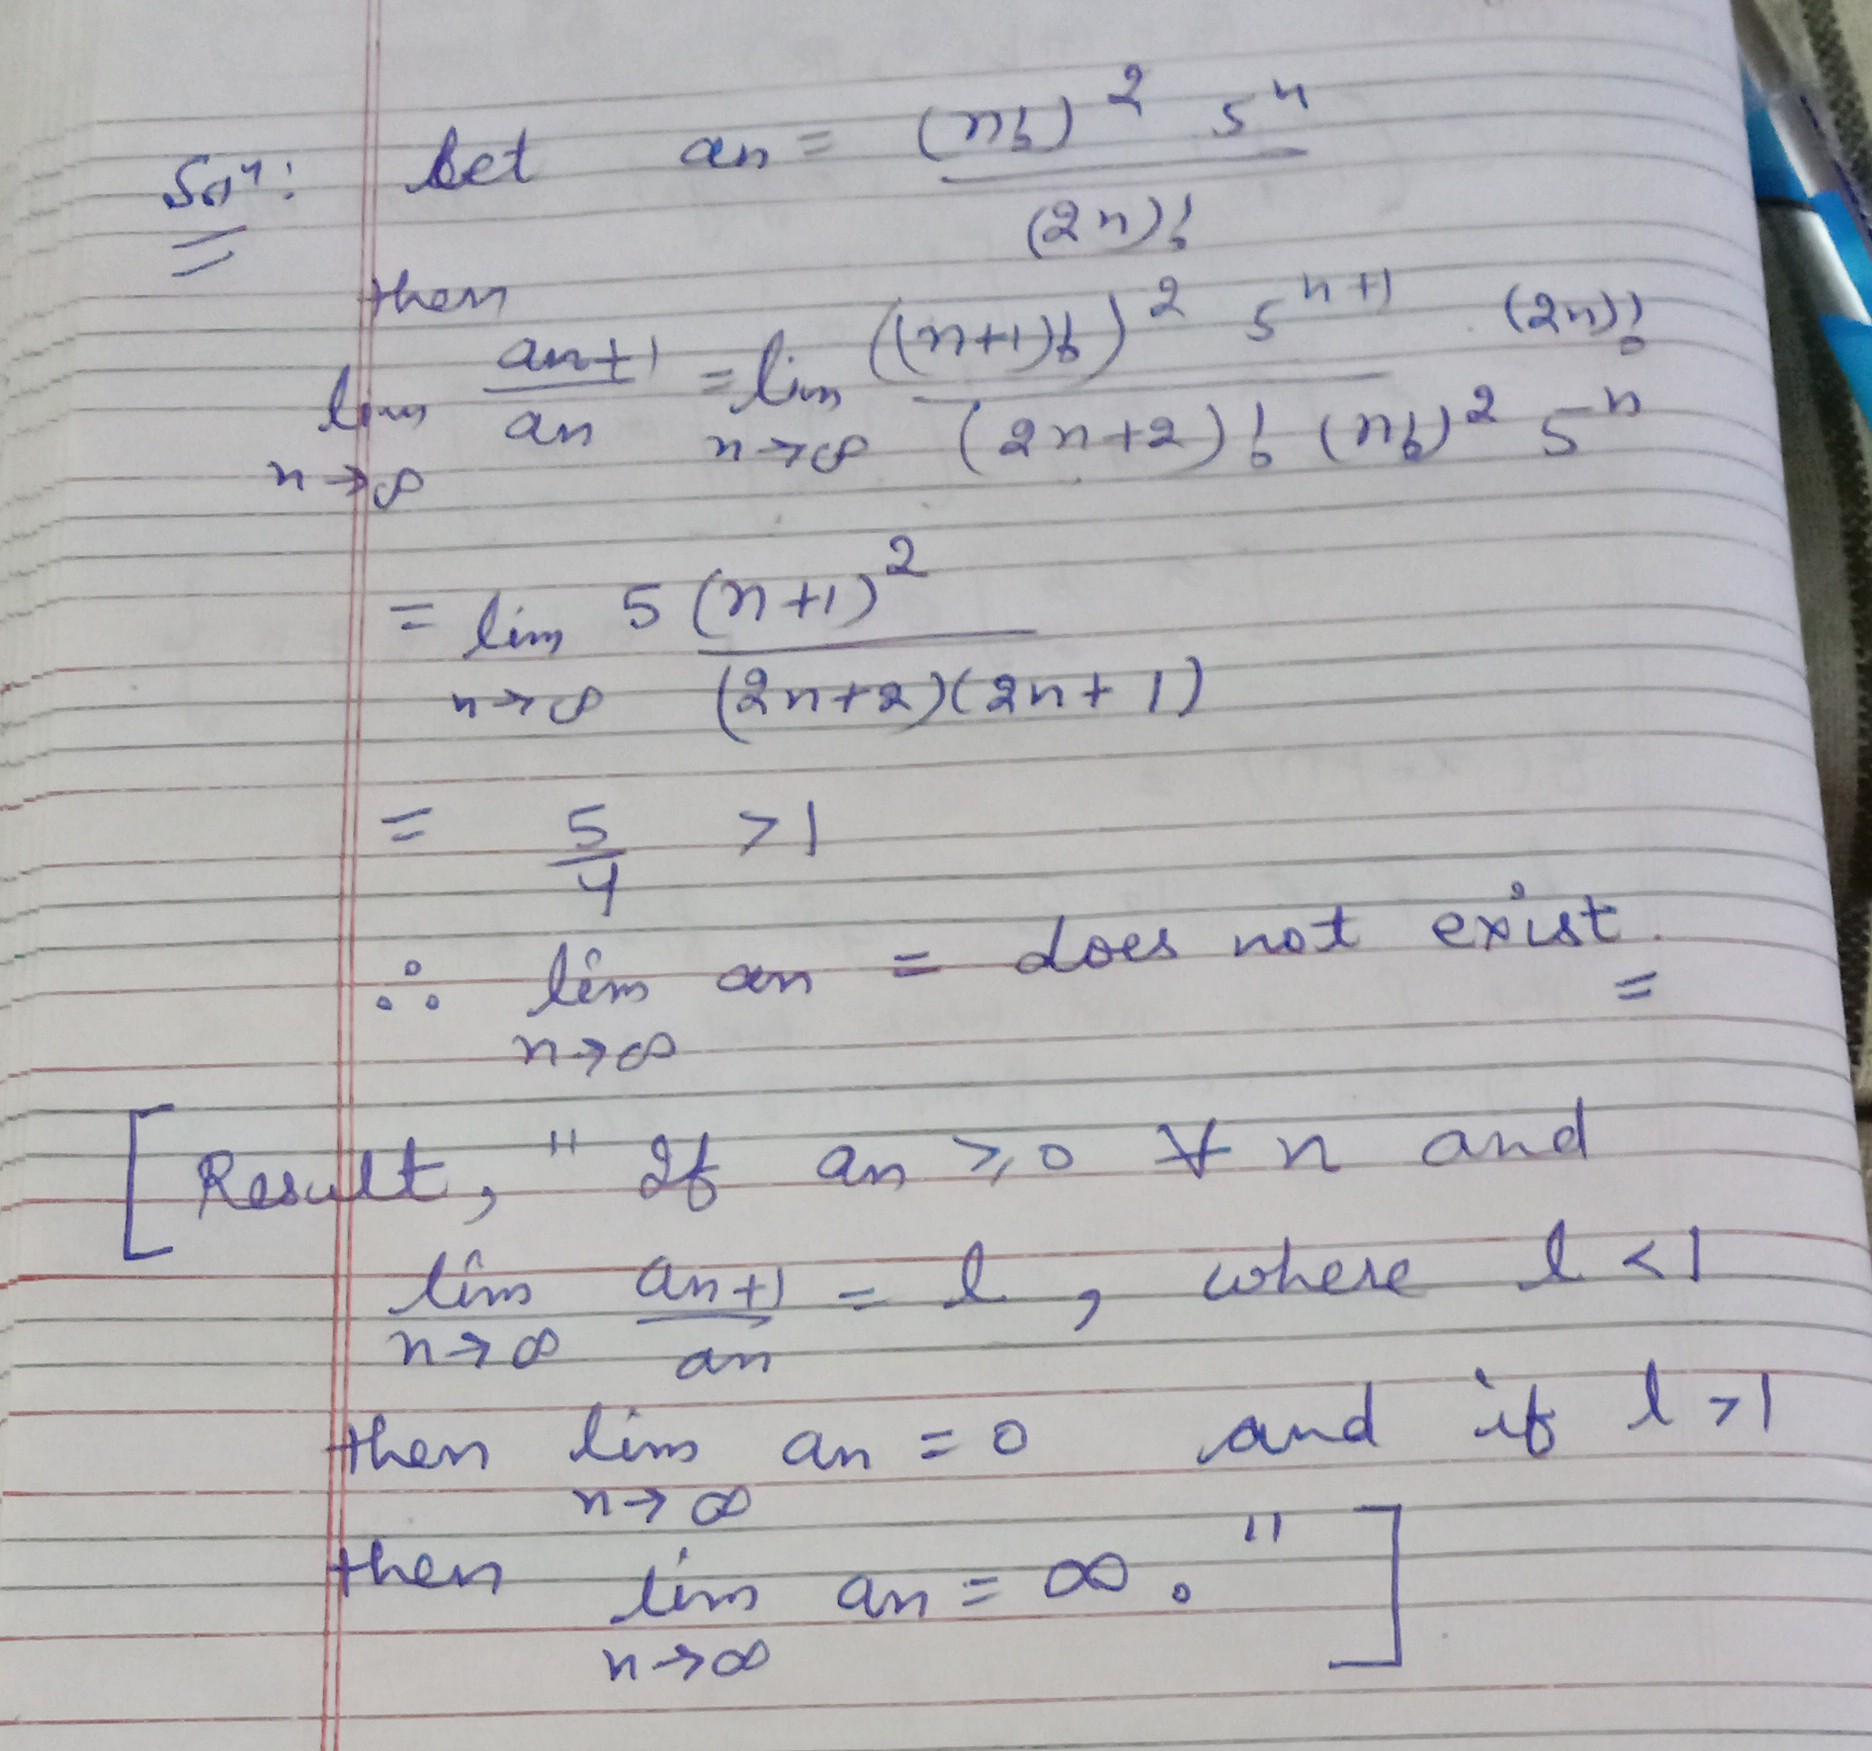 Soln: Let an = (n!)² 5ⁿ / (2n)!
then
lim n→∞ an+1 / an = lim n→∞ ((n+1)!)² 5ⁿ⁺¹ (2n)! / (2n+2)! (n!)² 5ⁿ
= lim n→∞ 5 (n+1)² / (2n+2)(2n+1)
= 5/4 > 1
∴ lim n→∞ an = does not exist.
[Result, " If an ≥ 0 ∀ n and
lim n→∞ an+1 / an = l , where l < 1
then lim n→∞ an = 0 and if l > 1
then lim n→∞ an = ∞ . " ]